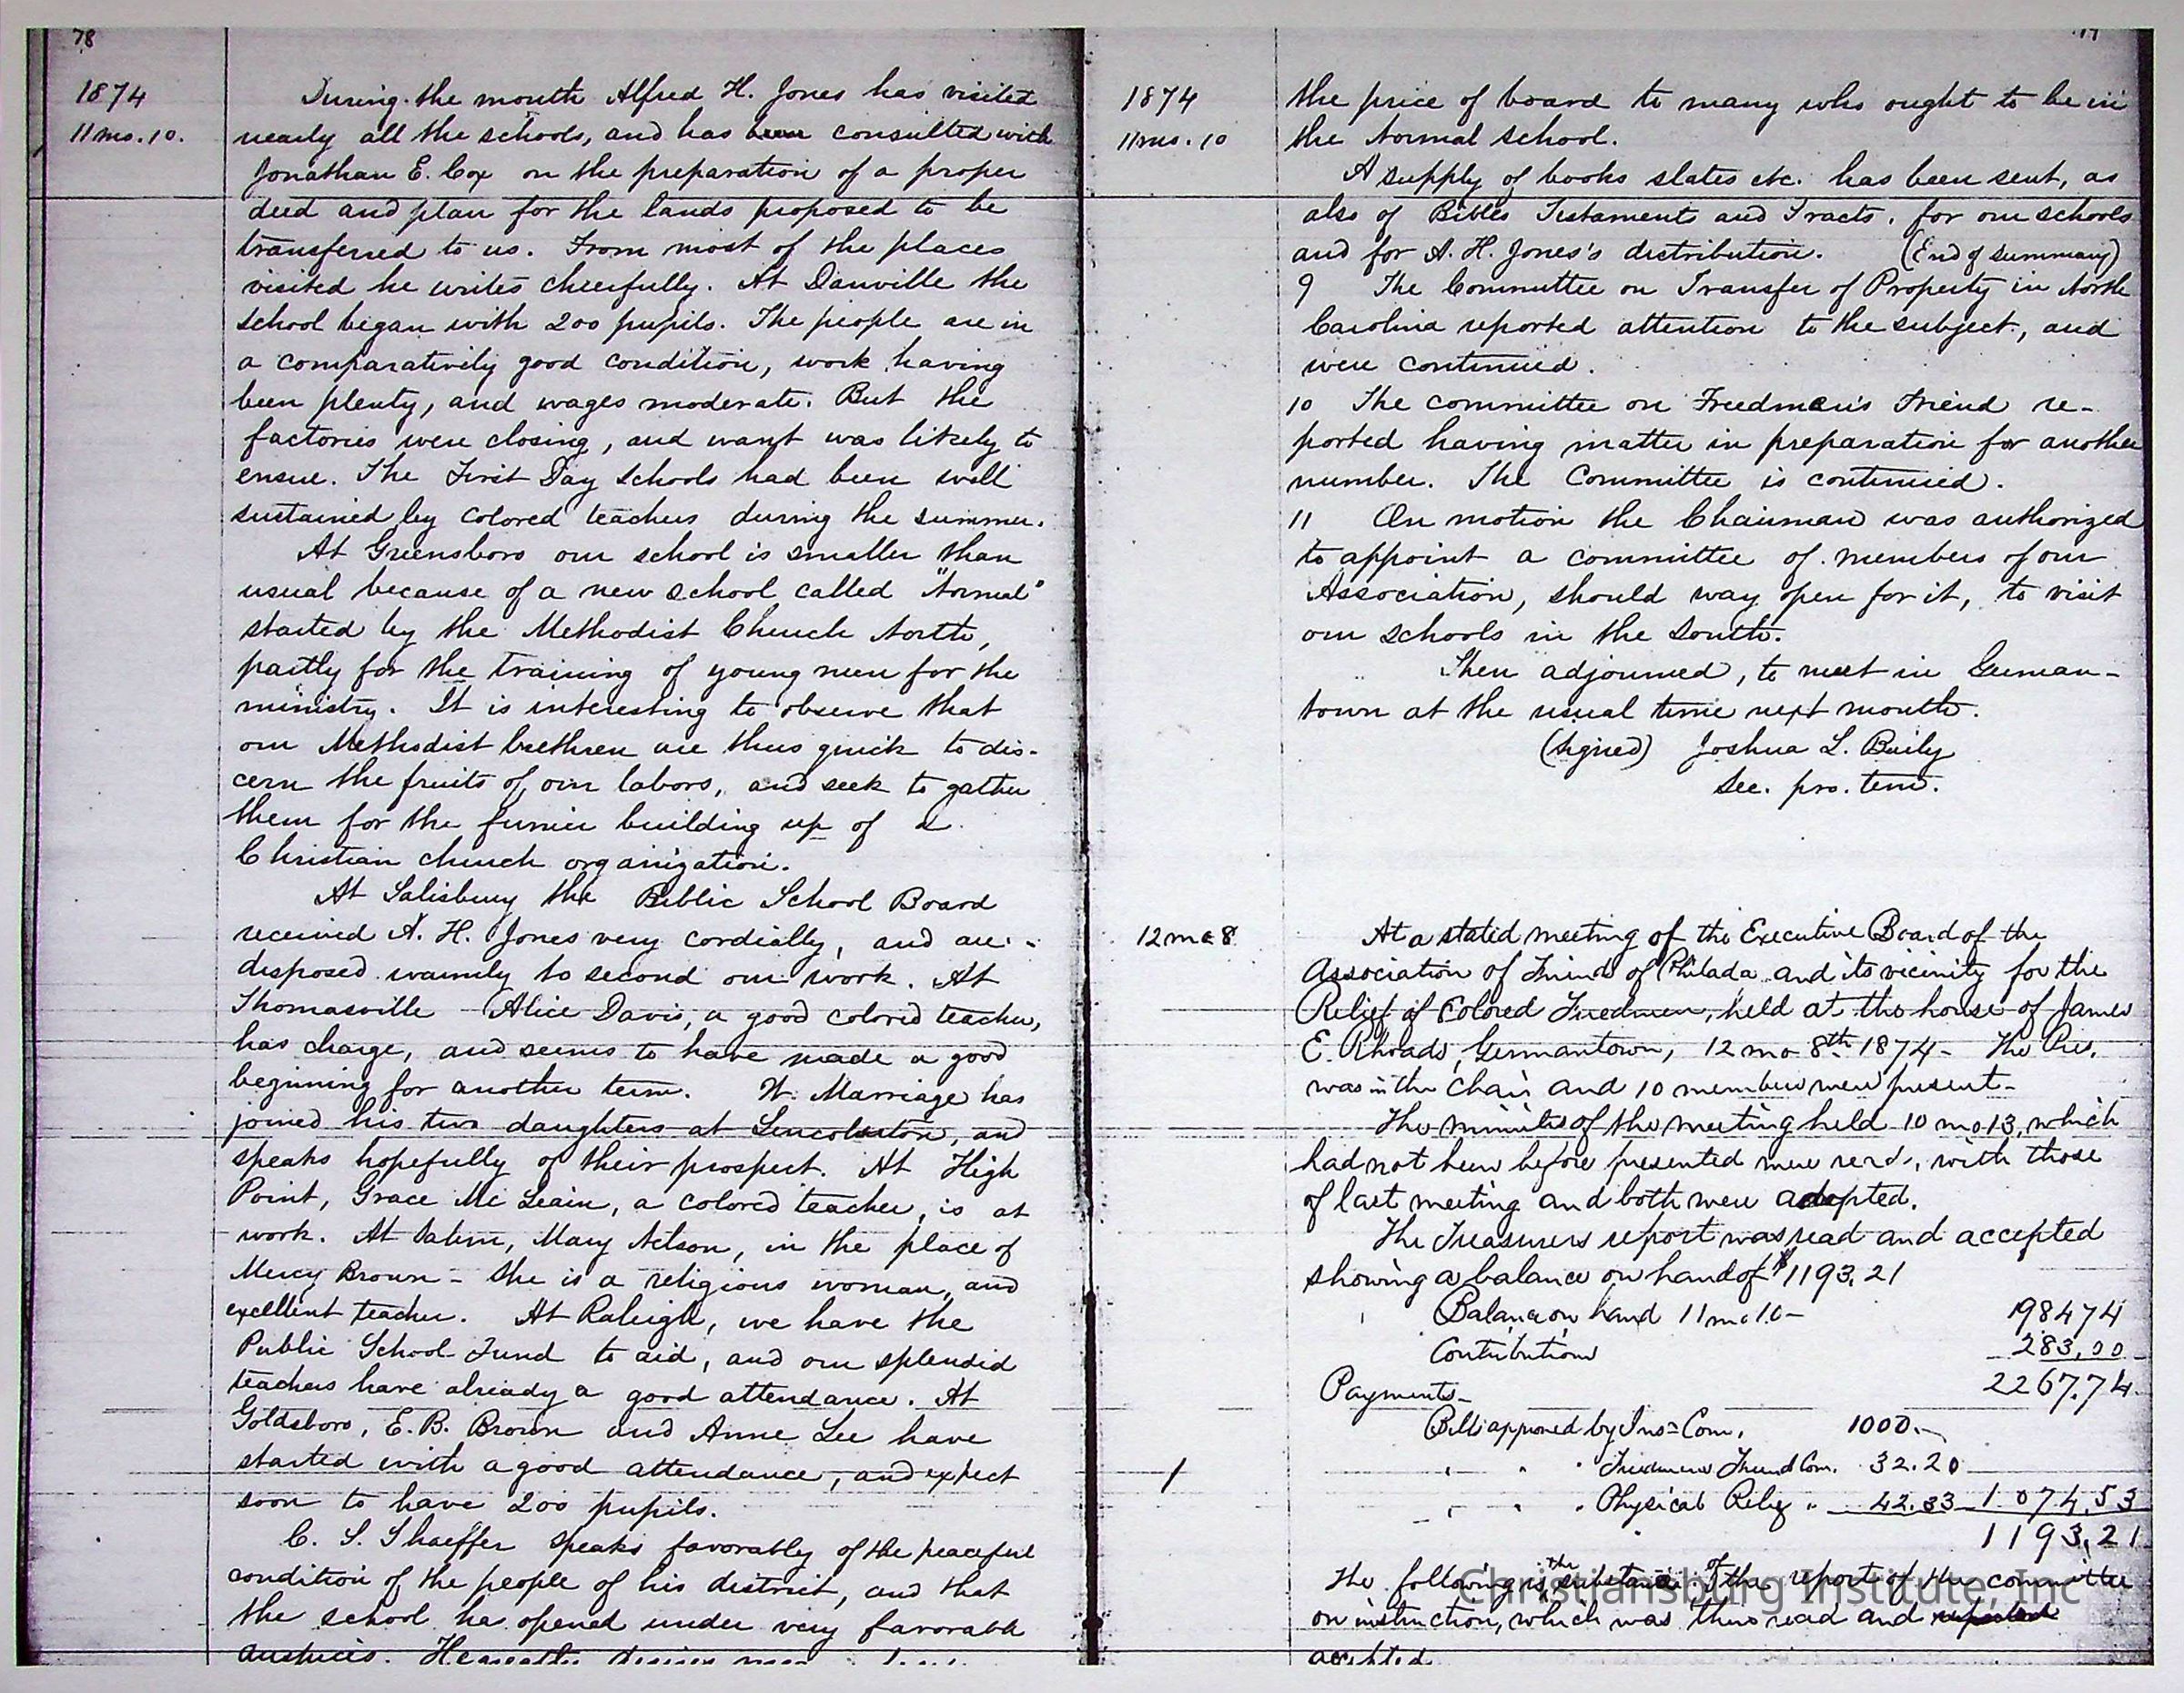 78
1874
11 mo. 10.
During the month Alfred H. Jones has visited
nearly all the schools, and has been consulted with
Jonathan E. Cox on the preparation of a proper
deed and plan for the lands proposed to be
transferred to us. From most of the places
visited he writes cheerfully. At Danville the
school began with 200 pupils. The people are in
a comparatively good condition, work having
been plenty, and wages moderate. But the
factories were closing, and want was likely to
ensue. The First Day Schools had been well
sustained by colored teachers during the summer.
At Greensboro our school is smaller than
usual because of a new school called "Normal"
started by the Methodist Church North,
partly for the training of young men for the
ministry. It is interesting to observe that
our Methodist brethren are thus quick to dis-
cern the fruits of our labors, and seek to gather
them for the further building up of a
Christian church organization.
At Salisbury the Public School Board
received A. H. Jones very cordially, and are
disposed warmly to second our work. At
Thomasville Alice Davis, a good colored teacher,
has charge, and seems to have made a good
beginning for another term. W. Marriage has
joined his two daughters at Lincolnton, and
speaks hopefully of their prospect. At High
Point, Grace Mc Leain, a colored teacher, is at
work. At Salem, Mary Nelson, in the place of
Mercy Brown - she is a religious woman, and
excellent teacher. At Raleigh, we have the
Public School Fund to aid, and our splendid
teachers have already a good attendance. At
Goldsboro, E. B. Brown and Anne Lee have
started with a good attendance, and expect
soon to have 200 pupils.
C. S. Shaeffer speaks favorably of the peaceful
condition of the people of his district, and that
the school has opened under very favorable
auspices.
1874
11 mo. 10
the price of board to many who ought to be in
the Normal school.
A supply of books slates etc. has been sent, as
also of Bibles Testaments and Tracts, for our schools
and for A. H. Jones's distribution. (End of summary)
9 The Committee on Transfer of Property in North
Carolina reported attention to the subject, and
were continued.
10 The committee on Freedmen's Friend re-
ported having matter in preparation for another
number. The Committee is continued.
11 On motion the Chairman was authorized
to appoint a committee of members of our
Association, should way open for it, to visit
our schools in the South.
Then adjourned, to meet in German-
town at the usual time next month.
(Signed) Joshua L. Baily
Sec. pro. tem.
12 mo 8
At a stated meeting of the Executive Board of the
Association of Friends of Philada and its vicinity for the
Relief of Colored Freedmen, held at the house of James
E. Rhoads, Germantown, 12 mo 8th 1874 - The Pres.
was in the Chair and 10 members were present -
The minutes of the meeting held 10 mo 13, which
had not been before presented were read, with those
of last meeting and both were adopted.
The Treasurers report was read and accepted
showing a balance on hand of $1193.21
Balance on hand 11 mo 10 - 1984 74
Contributions 283,00
Payments - 2267.74
Bills approved by Ins= Com. 1000.-
" " " Freedmens Friend Com. 32.20
" " " Physical Relief " 42.33 1074.53
1193.21
The following is the substance of the report of the committee
on instruction, which was then read and
accepted
Christiansburg Institute, Inc